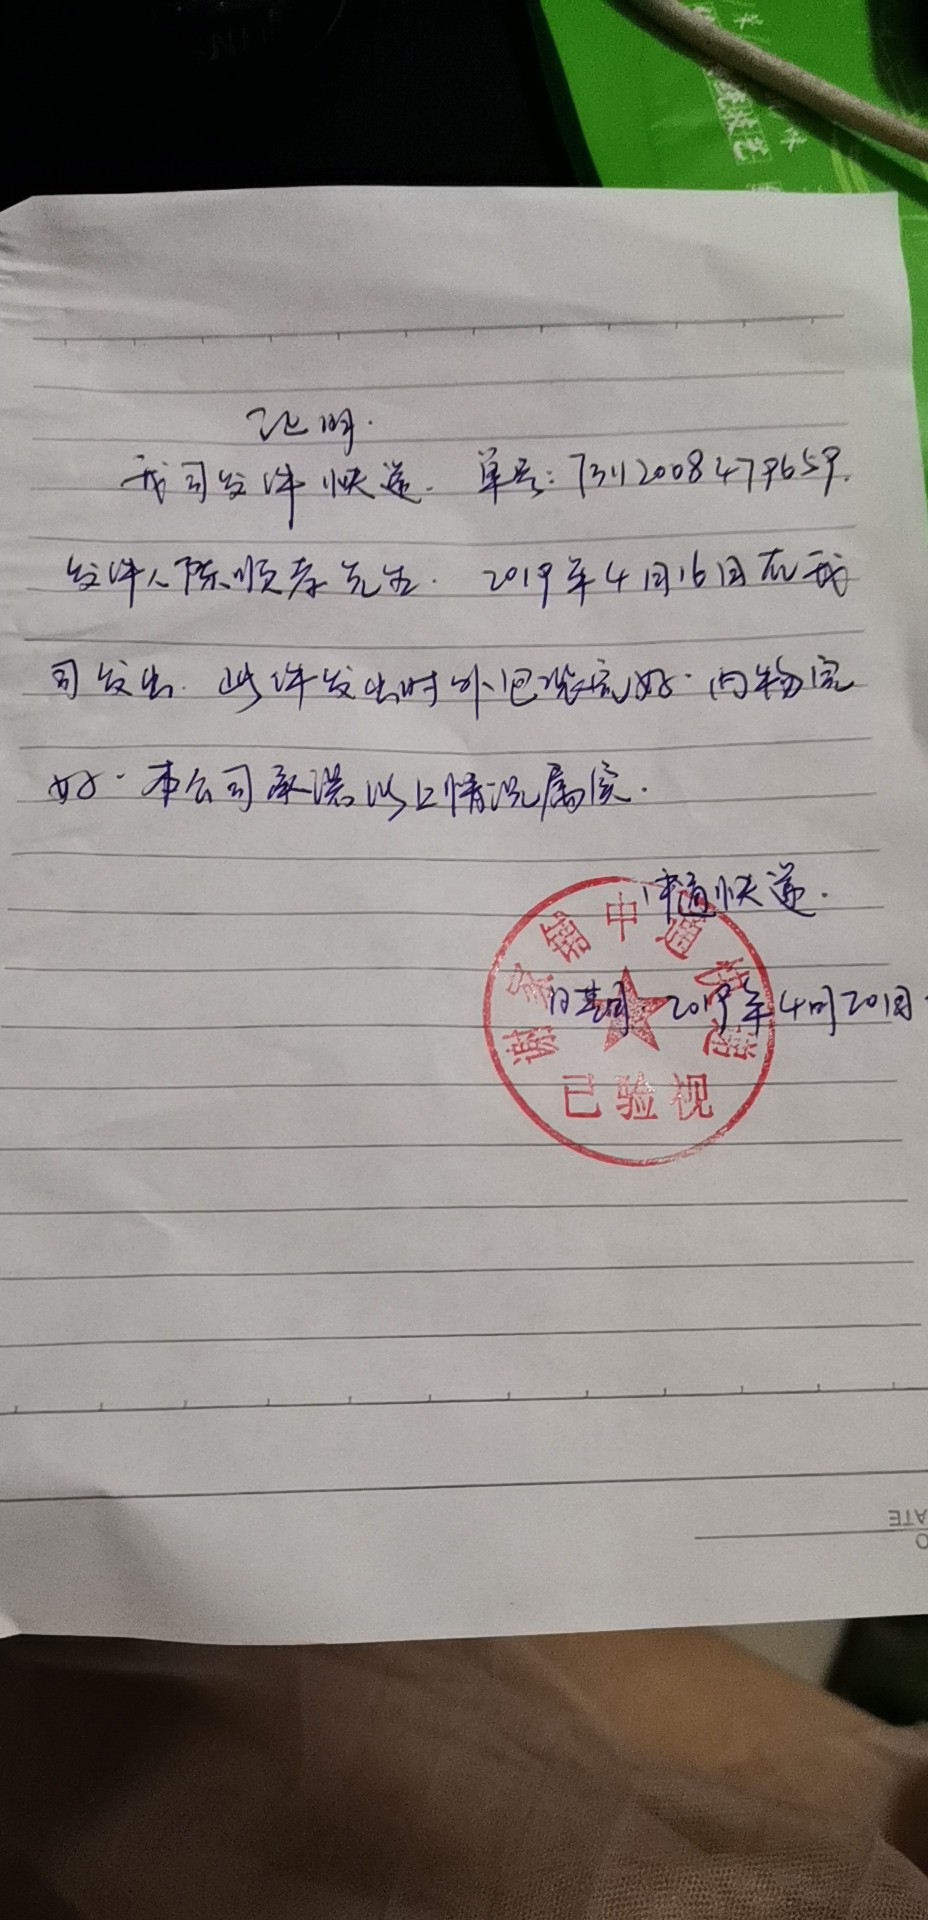 统技艺
证明.
我司发件快递. 单号:73112008479659.
发件人陈顺孝先生. 2019年4月16日在我
司发出. 此件发出时外包装完好. 内物完
好. 本公司承诺以上情况属实.
中通快递.
日期 2019年4月20日
谢家铺中通快递
已验视
ATE
O